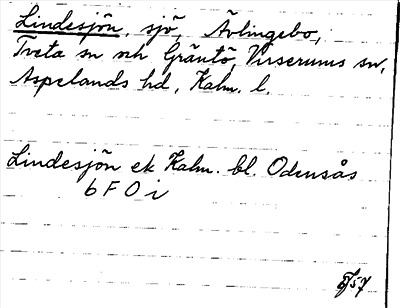 Lindesjön, sjö, Ävlingebo,
Tveta sn och Gräntö, Virserums sn,
Aspelands hd, Kalm. l.
Lindesjön ek Kalm. bl. Odensås
6 F O i